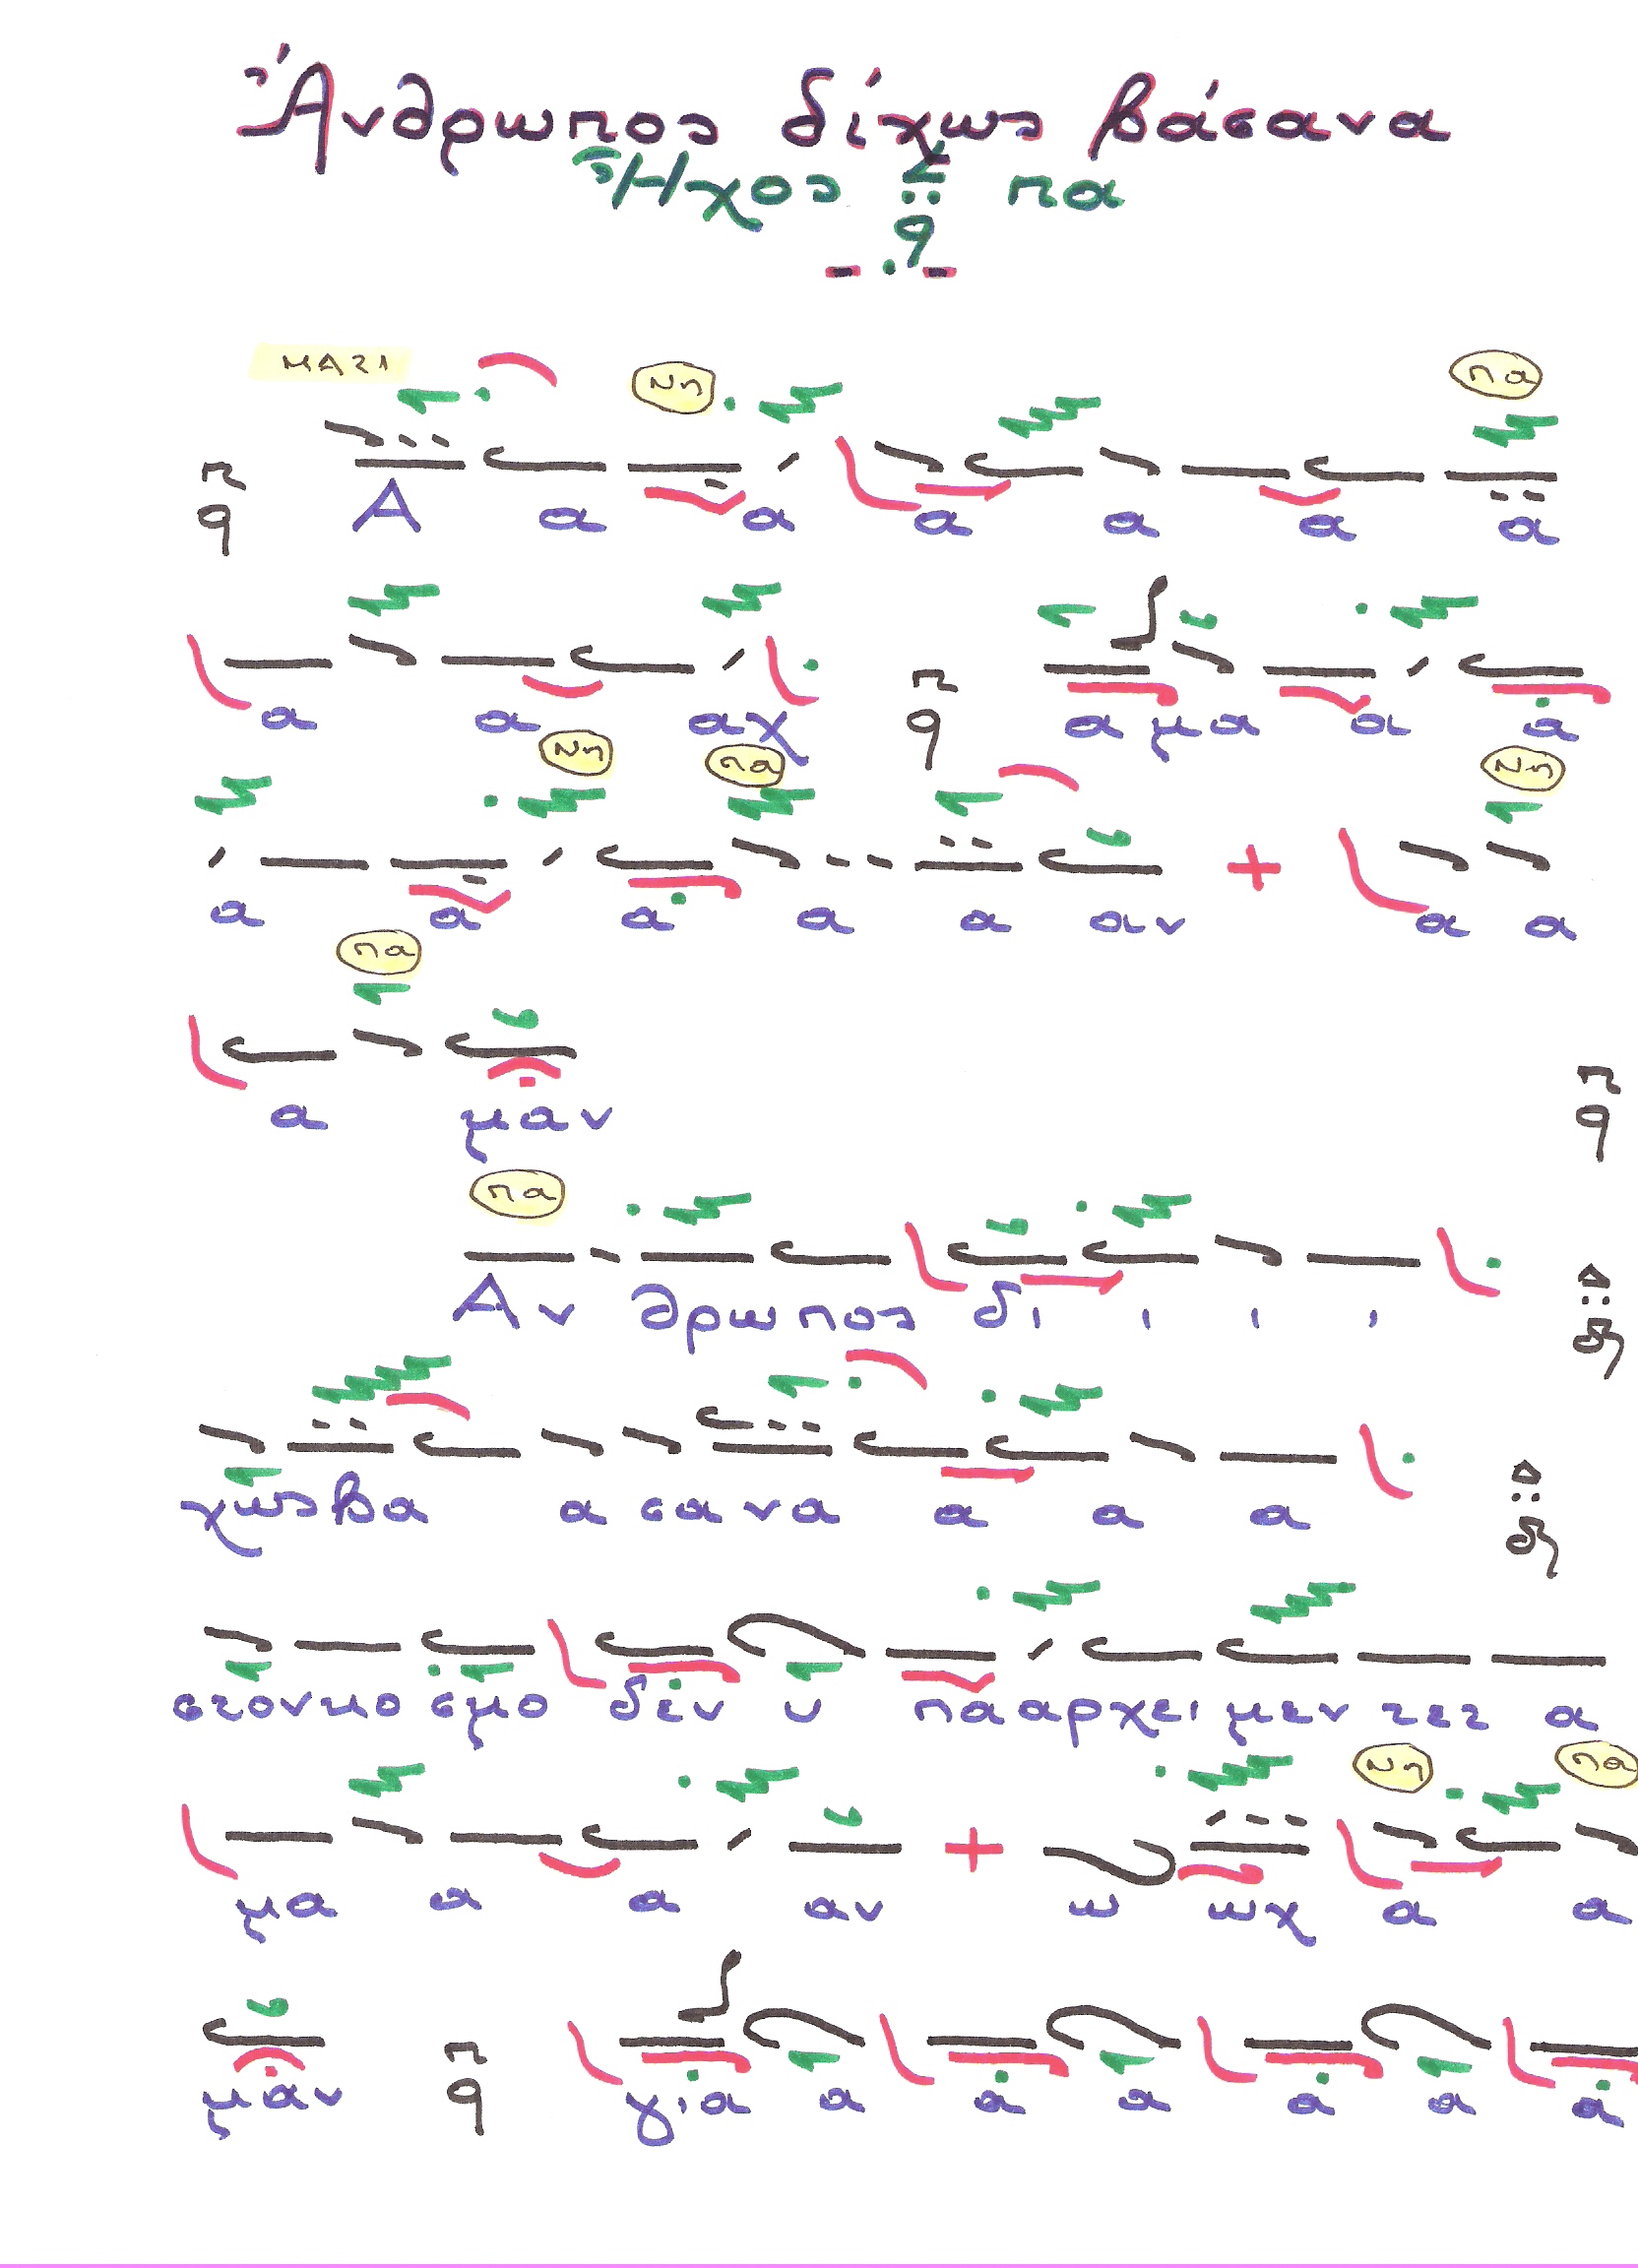 Ἄνθρωπος δίχως βάσανα
Ἦχος πα
ΜΑΖΙ Νη πα
π
q
Α α α α α α α
α α αχ π q α μα α α
Νη πα Νη
α α α α α αν α α
πα
α μαν π q
πα
Αν θρωπος δι ι ι ι Δ δι
χως βα α σα να α α α Δ δι
στον κο σμο δεν υ πα αρχει μεν τες α
Νη πα
μα α α αν ω ωχ α α
μαν π q για α α α α α α